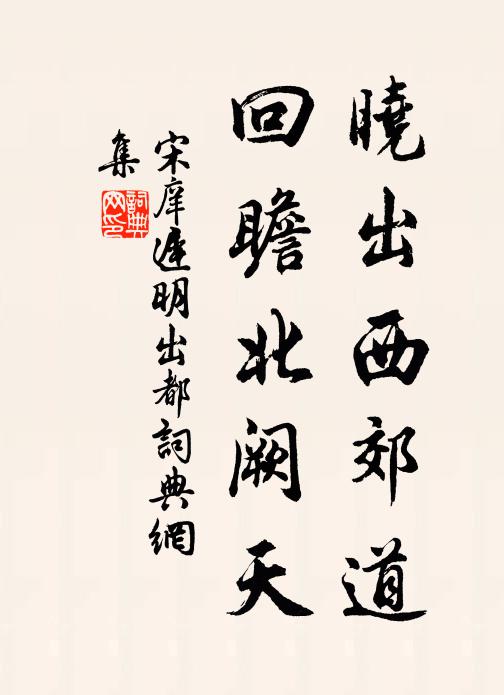 曉出西郊道
回瞻北闕天
宋庠遲明出都詞典網
集
詞典網印